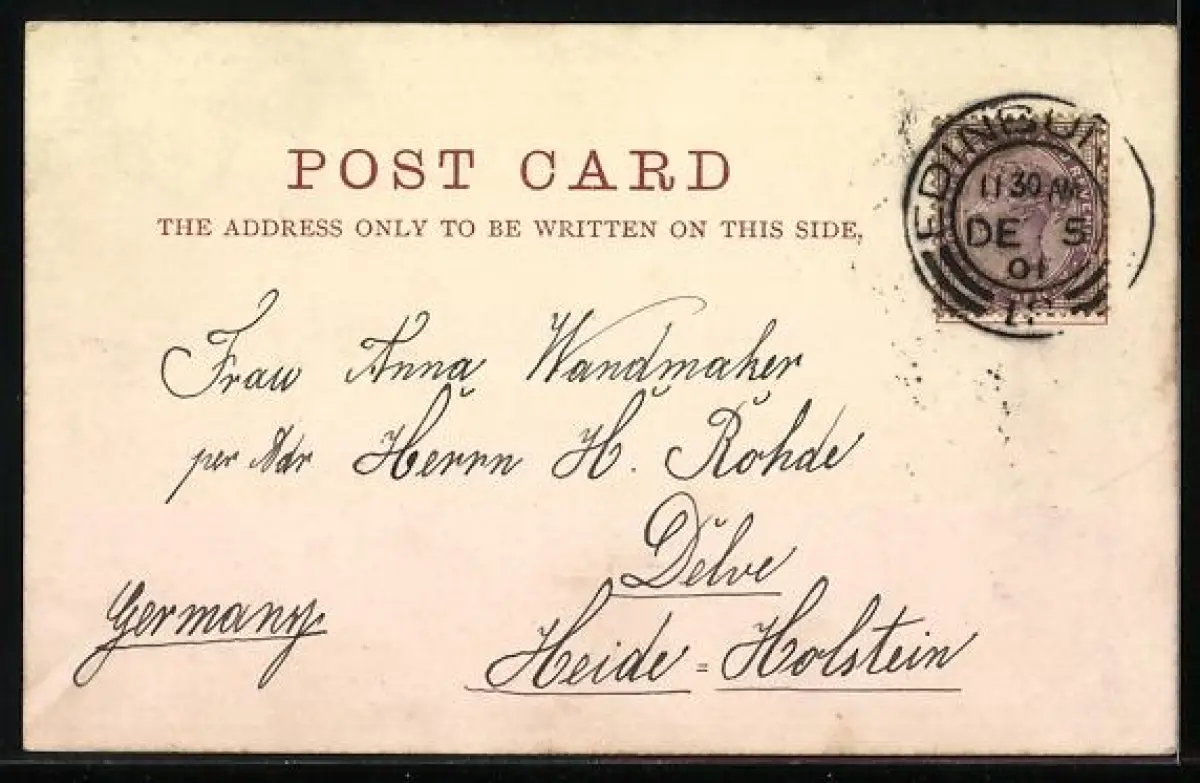 POST CARD
THE ADDRESS ONLY TO BE WRITTEN ON THIS SIDE.
EDINBU
11 30 AM
DE 5
01
REVENUE
Frau Anna Wandmaker
per Adr Herrn H. Rohde
Delve
Germany.
Heide = Holstein